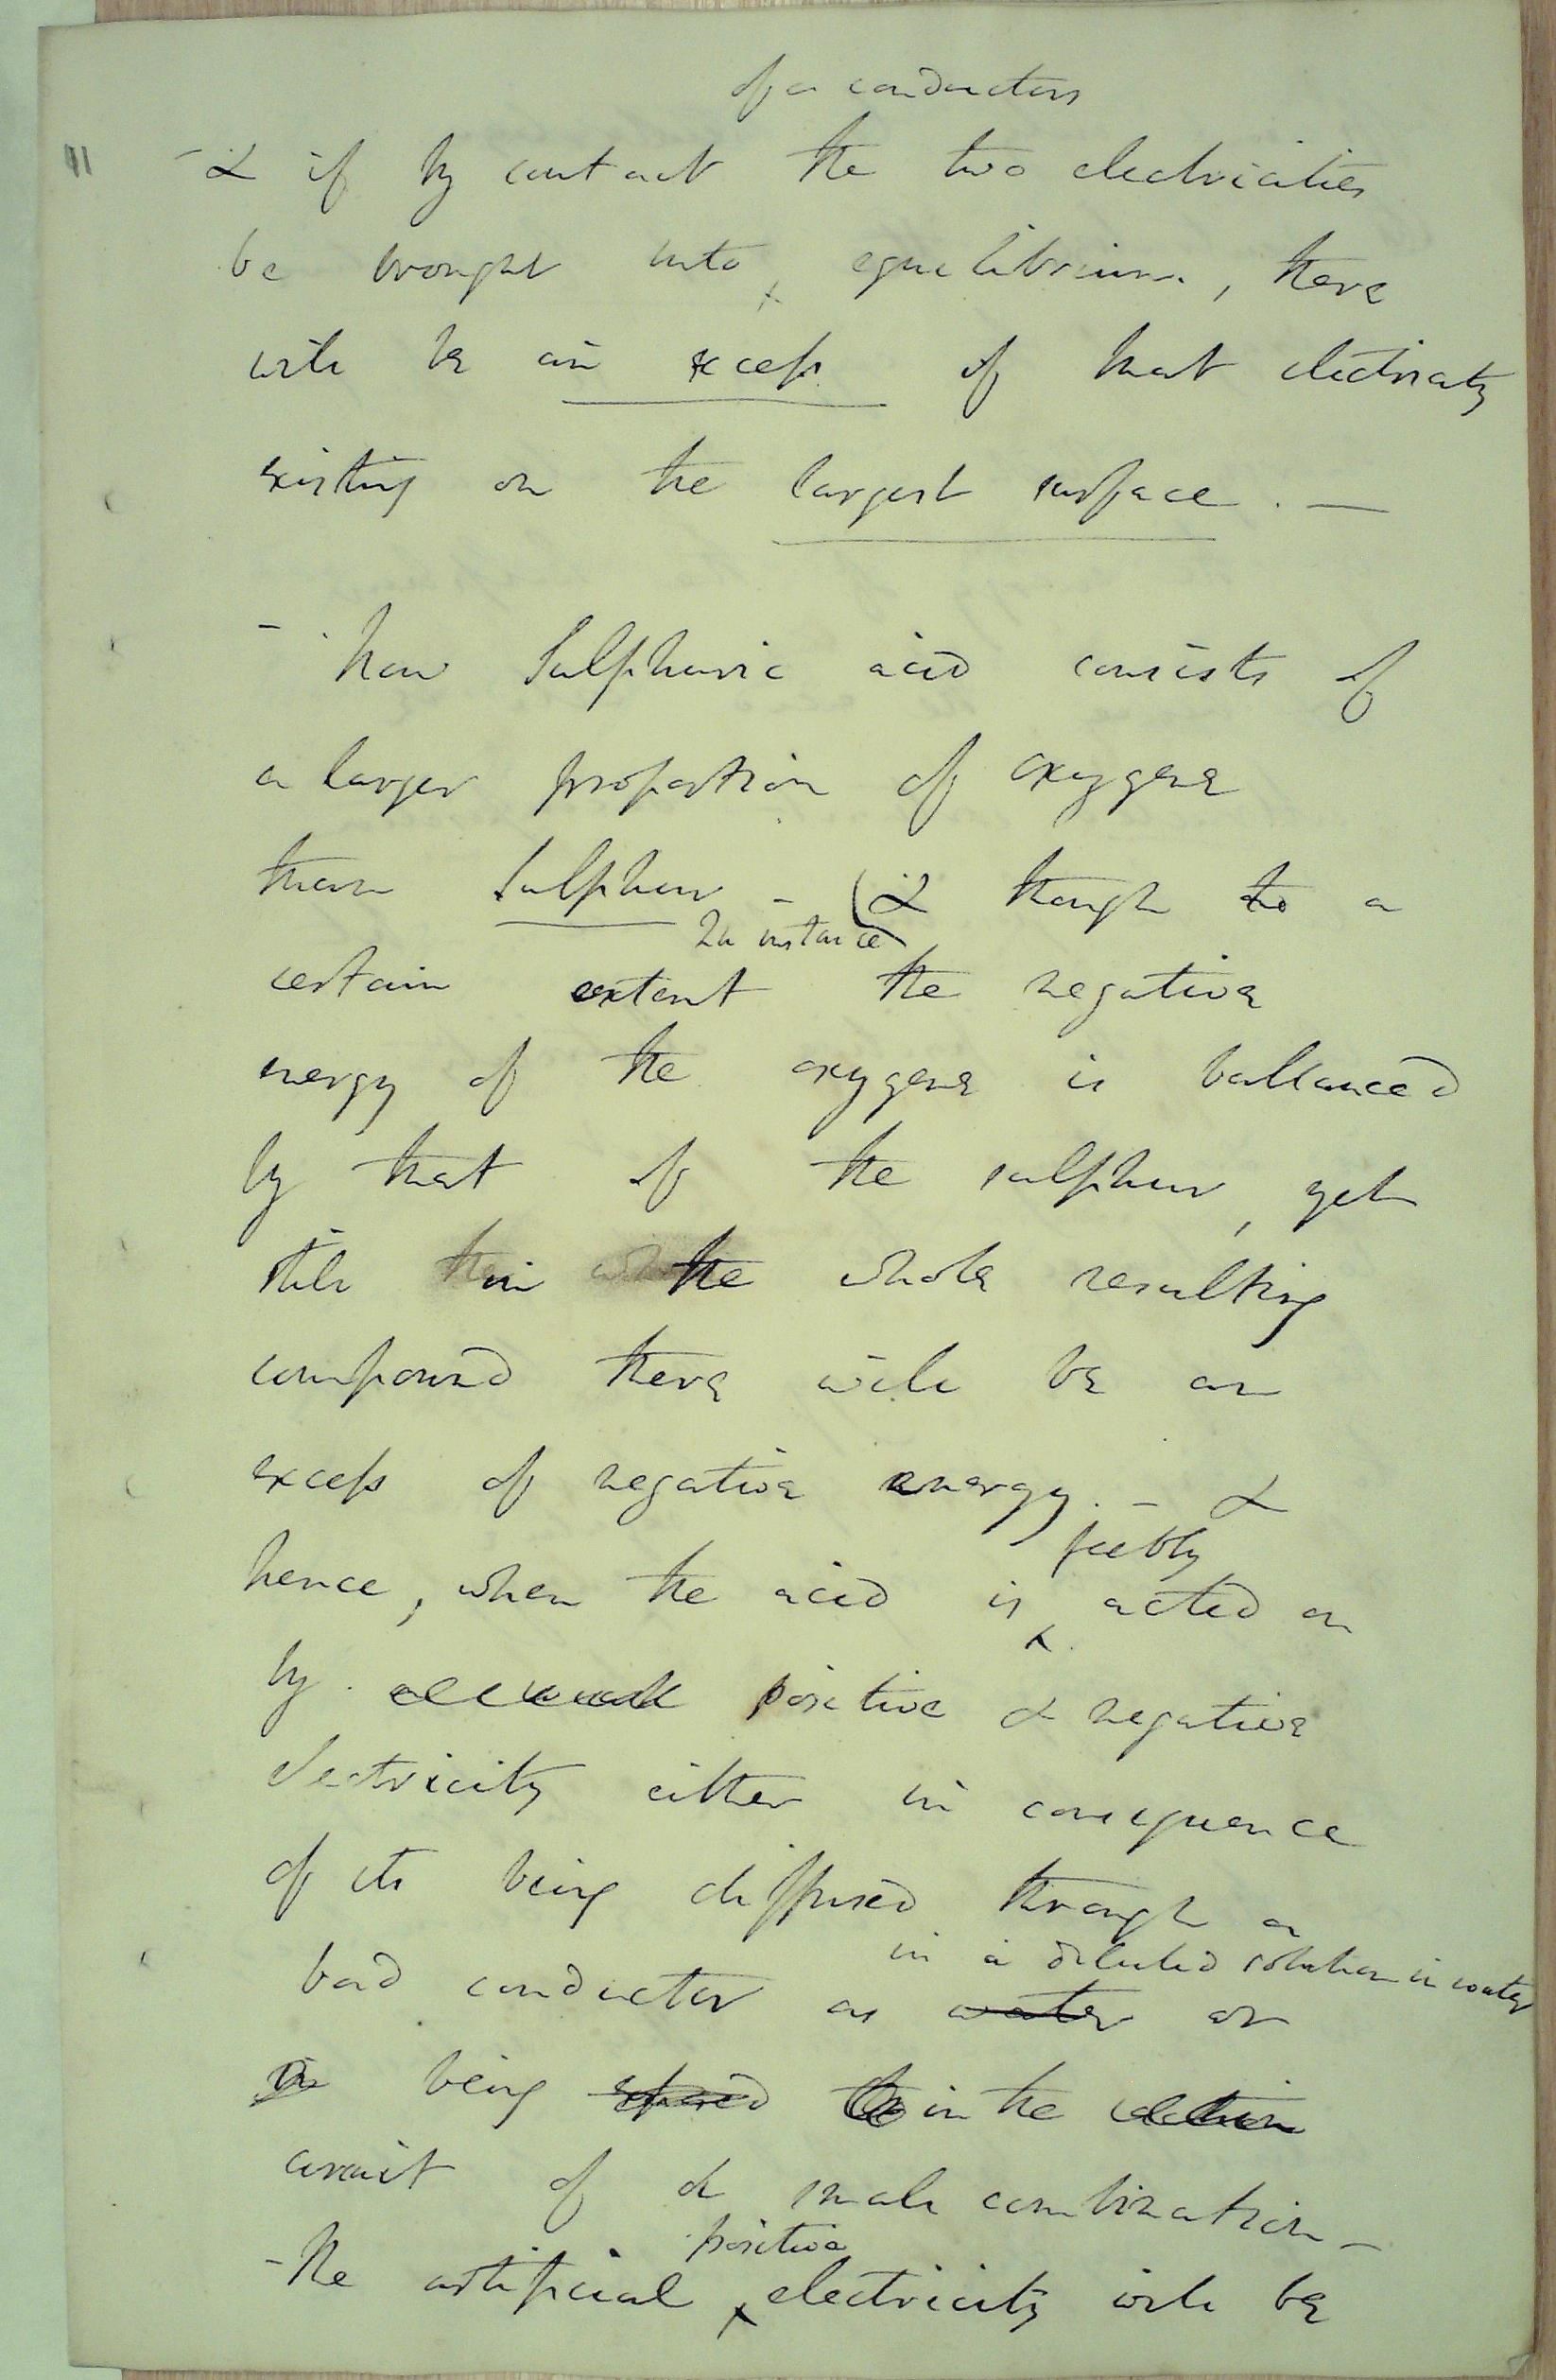 of a conductors
11 - & if by contact the two electricities
be brought into x equilibrium, there
will be an excess of that electricity
existing on the largest surface. —
- Now Sulphuric acid consists of
a larger proportion of oxygene
than Sulphur - (& though to a
In instance
certain extent the negative
energy of the oxygene is ballanced
by that of the sulphur, yet
still in the whole resulting
compound there will be an
excess of negative energy. - &
feebly
hence, when the acid is x acted on
by positive & negative
electricity either in consequence
of its being diffused through a
in a diluted solution in water
bad conductor as water or
being in the
circuit of a small combination -
positive
- the artificial x electricity will be